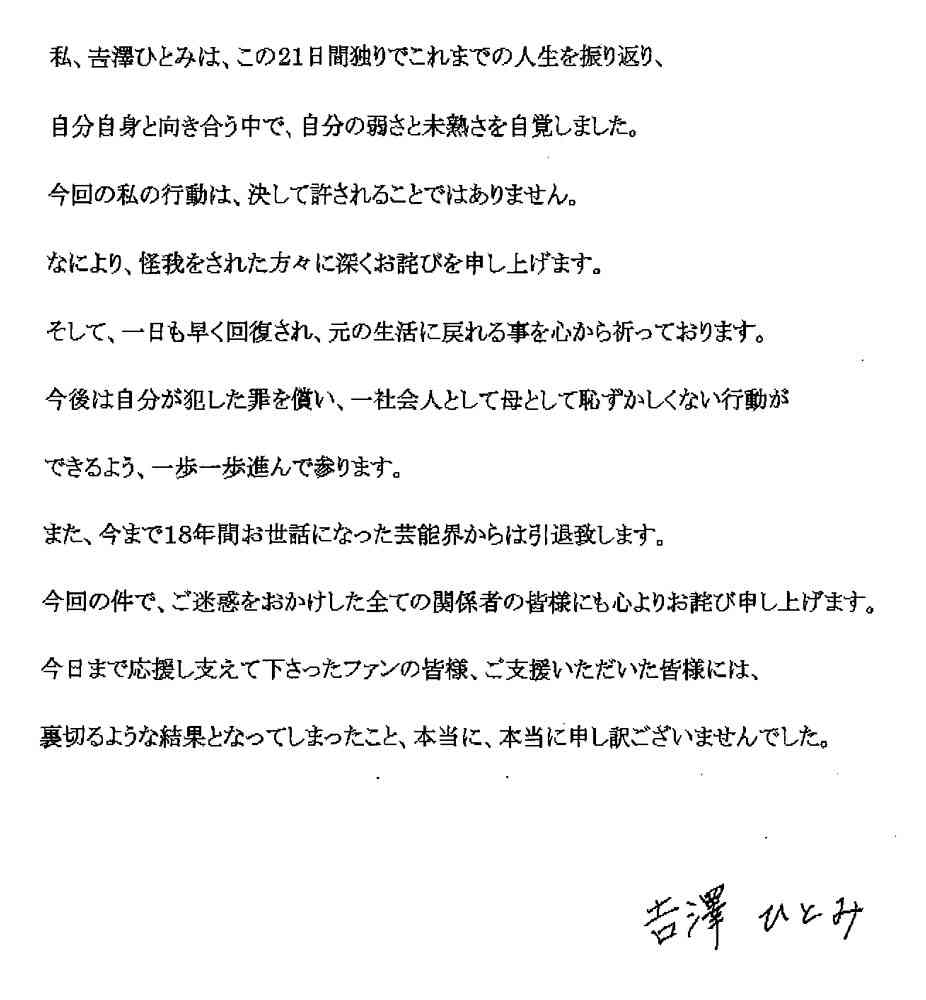 私、𠮷澤ひとみは、この21日間独りでこれまでの人生を振り返り、
自分自身と向き合う中で、自分の弱さと未熟さを自覚しました。
今回の私の行動は、決して許されることではありません。
なにより、怪我をされた方々に深くお詫びを申し上げます。
そして、一日も早く回復され、元の生活に戻れる事を心から祈っております。
今後は自分が犯した罪を償い、一社会人として母として恥ずかしくない行動が
できるよう、一歩一歩進んで参ります。
また、今まで18年間お世話になった芸能界からは引退致します。
今回の件で、ご迷惑をおかけした全ての関係者の皆様にも心よりお詫び申し上げます。
今日まで応援し支えて下さったファンの皆様、ご支援いただいた皆様には、
裏切るような結果となってしまったこと、本当に、本当に申し訳ございませんでした。
𠮷澤 ひとみ